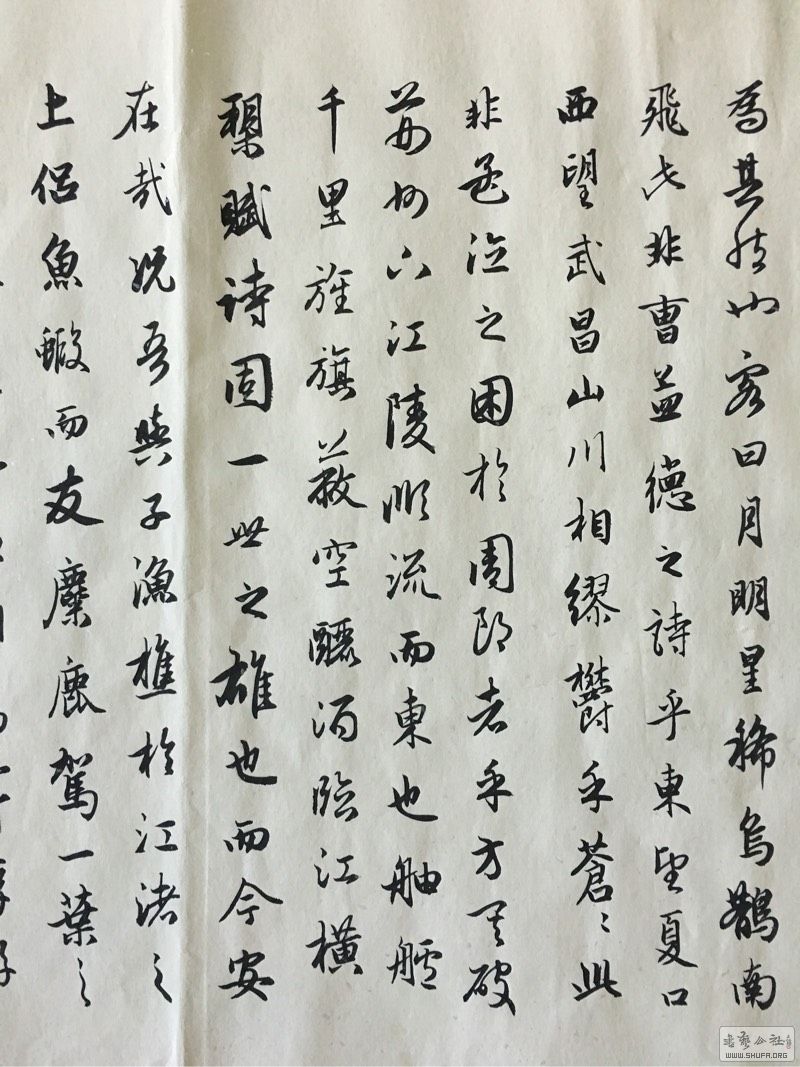 為其然也客曰月明星稀烏鵲南
飛此非曹孟德之詩乎東望夏口
西望武昌山川相繆鬱乎蒼〻此
非孟德之困於周郎者乎方其破
荊州下江陵順流而東也舳艫
千里旌旗蔽空釃酒臨江橫
槊賦詩固一世之雄也而今安
在哉況吾與子漁樵於江渚之
上侶魚蝦而友麋鹿駕一葉之
書藝公社
WWW.SHUFA.ORG